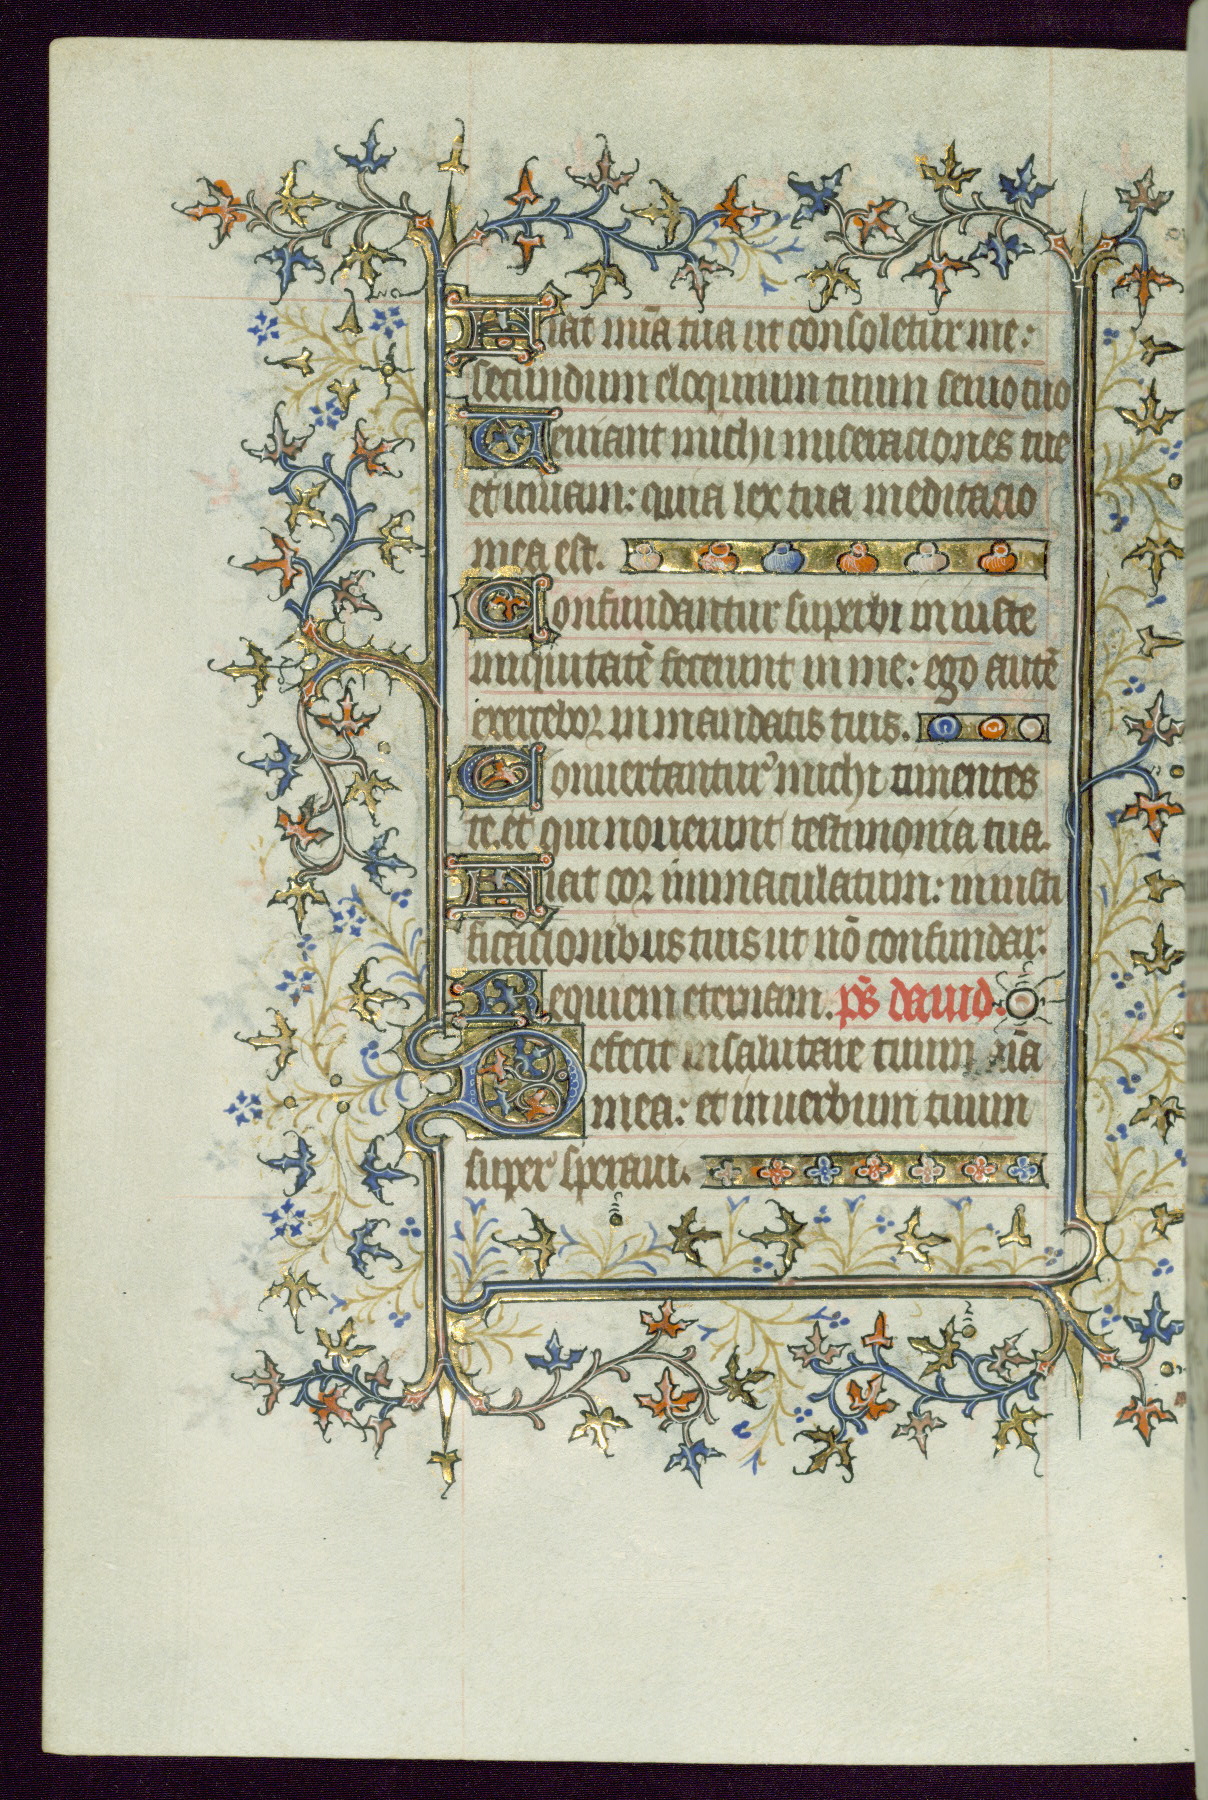 Fiat mīa tua ut consoletur me:
secundum eloquium tuum seruo tuo
Ueniant michi miseraciones tue
et uiuam: quia lex tua meditacio
mea est.
Confundantur superbi in iuste
iniquitatē fecerunt in me: ego autē
exercebor in mandatis tuis.
Conuertantur michi timentes
te et qui nouerunt testimonia tua.
Fiat cor immaculatum: in iusti
ficacionibus tuis ut nō confundar.
Requiem eternam. p̄s dauid.
Defecit in salutare tuum aīa
mea: et in uerbum tuum
super speraui.